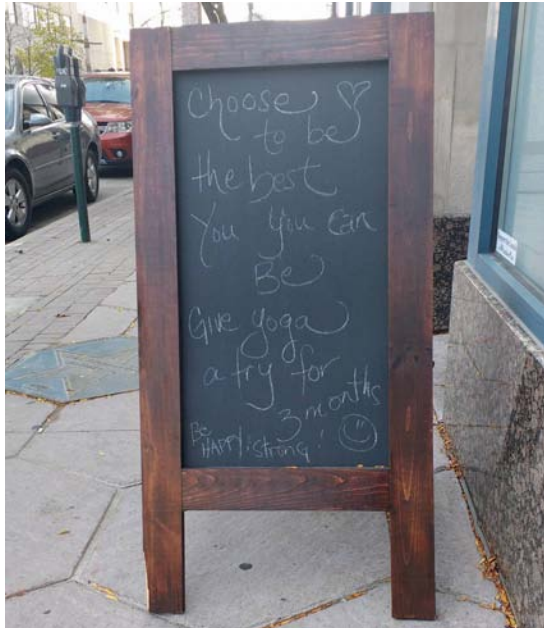 Choose
to be
the best
You you can
Be
Give yoga
a try for
3 months
Be
HAPPY! strong!